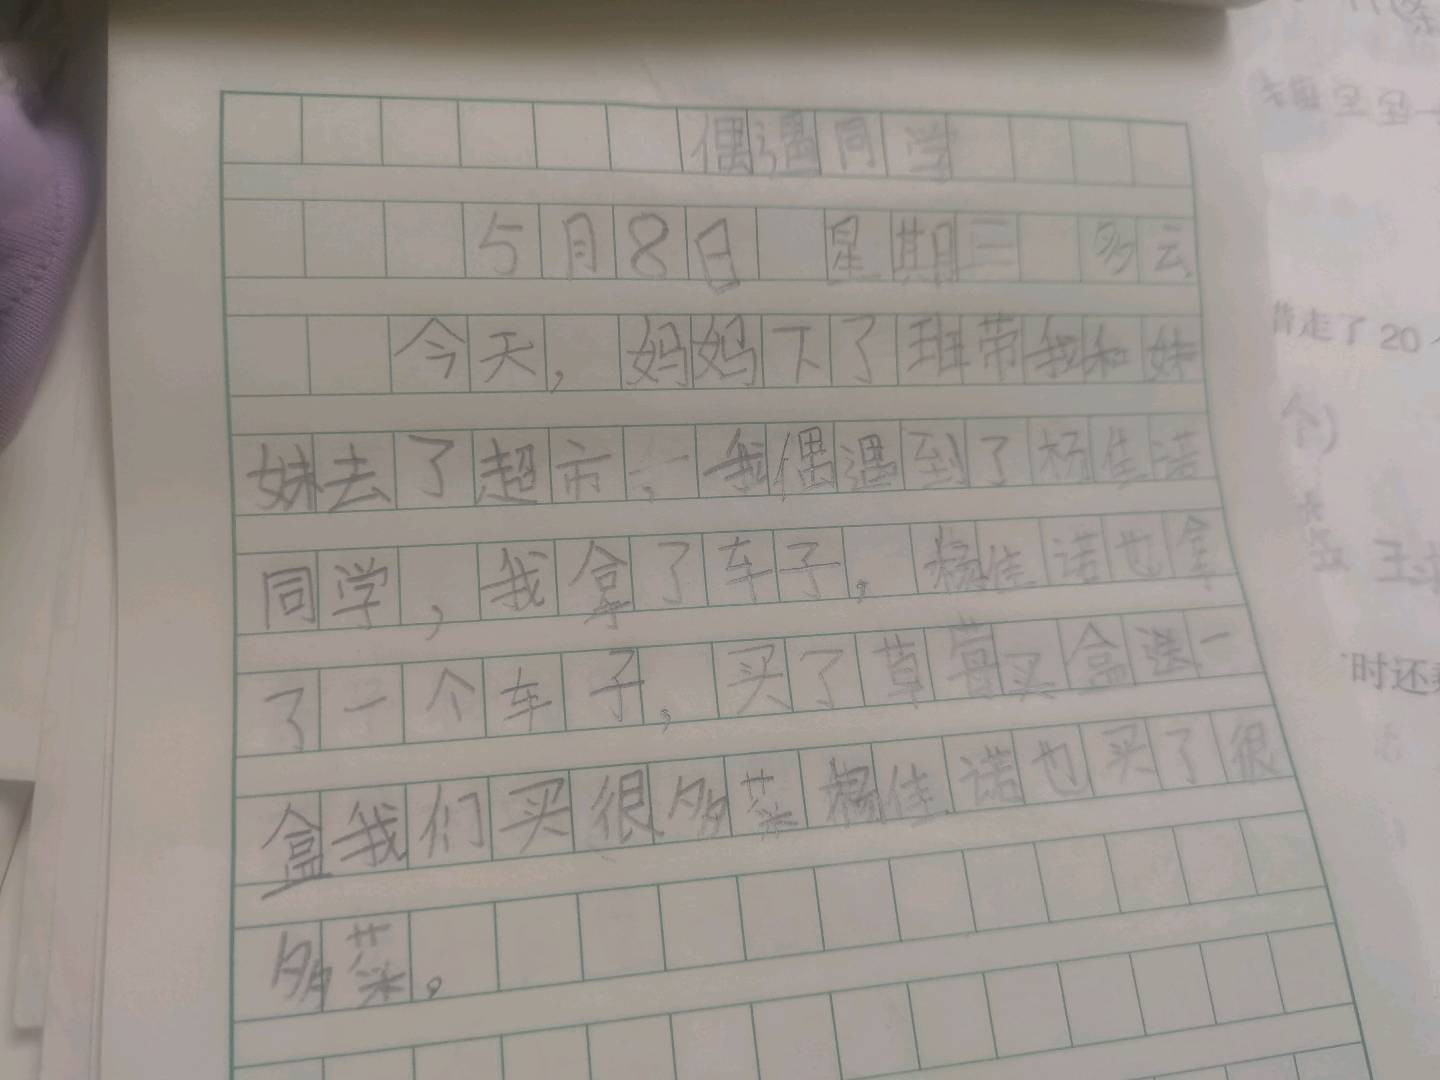 偶遇同学
5月8日 星期三 多云
今天，妈妈下了班带我和妹
妹去了超市，我偶遇到了杨佳诺
同学，我拿了车子，杨佳诺也拿
了一个车子，买了草莓买盒送一
盒我们买很多菜杨佳诺也买了很
多菜。
背走了20
个)
时还